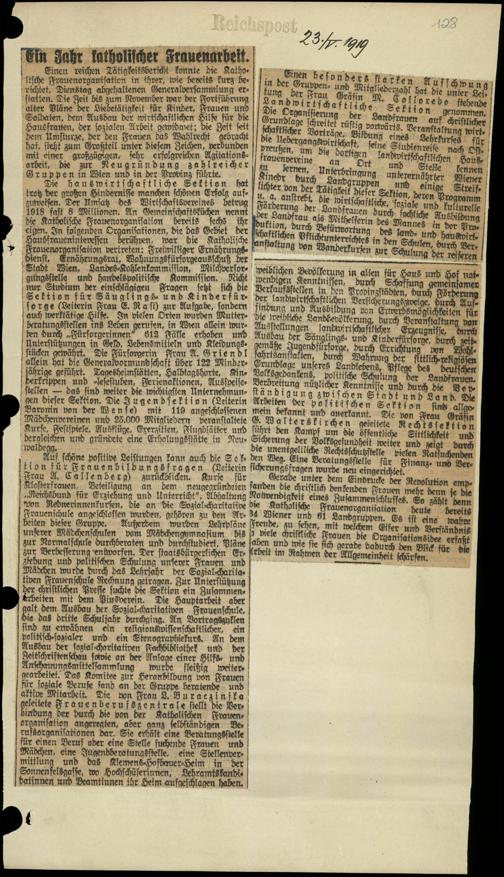 Reichspost
128
23./V. 1919
Ein Jahr katholischer Frauenarbeit.
Einen reichen Tätigkeitsbericht konnte die Katho-
lische Frauenorganisation in ihrer, wie bereits kurz be-
richtet, Dienstag abgehaltenen Generalversammlung er-
statten. Die Zeit bis zum November war der Fortführung
alter Pläne der Liebetätigkeit für Kinder, Frauen und
Soldaten, dem Ausbau der wirtschaftlichen Hilfe für die
Hausfrauen, der sozialen Arbeit gewidmet; die Zeit seit
dem Umsturze, der den Frauen das Wahlrecht gebracht
hat, steht zum Großteil unter diesem Zeichen, verbunden
mit einer großzügigen, sehr erfolgreichen Agitations-
arbeit, die zur Neugründung zahlreicher
Gruppen in Wien und in der Provinz führte.
Die hauswirtschaftliche Sektion hat
trotz der großen Hindernisse manchen schönen Erfolg auf-
zuweisen. Der Umsatz des Wirtschaftsvereines betrug
1918 fast 8 Millionen. An Gemeinschaftsküchen nennt
die Katholische Frauenorganisation bereits sechs ihr
eigen. In folgenden Organisationen, die das Gebiet der
Hausfraueninteressen berühren, war die Katholische
Frauenorganisation vertreten: Freiwilliger Ernährungs-
dienst, Ernährungsrat, Wohnungsfürsorgeausschuß der
Stadt Wien, Landes-Kohlenkommission, Milchversor-
gungsstelle und handelspolitische Kommission. Nicht
nur Studium der einschlägigen Fragen setzt sich die
Sektion für Säuglings- und Kinderfür-
sorge (Leiterin Frau E. Raß) zur Aufgabe, sondern
auch werktätige Hilfe. In vielen Orten wurden Mutter-
beratungsstellen ins Leben gerufen, in Wien allein wur-
den durch „Fürsorgerinnen" 612 Fälle erhoben und
Unterstützungen in Geld, Lebensmitteln und Kleidungs-
stücken gewährt. Die Fürsorgerin Frau A. Griendl
allein hat die Generalvormundschaft über 122 Minder-
jährige geführt. Tagesheimstätten, Halbtagshorte, Kin-
derkrippen und -lesestuben, Ferienaktionen, Ausspeise-
stellen — das sind weiter die wichtigsten Unternehmun-
gen dieser Sektion. Die Jugendsektion (Leiterin
Baronin von der Wense) mit 119 angeschlossenen
Mädchenvereinen und 25.000 Mitgliedern veranstaltete
Kurse, Festspiele, Ausflüge, Exerzitien, Flugblätter und
dergleichen und gründete eine Erholungsstätte in Neu-
waldegg.
Auf schöne positive Leistungen kann auch die Sek-
tion für Frauenbildungsfragen (Leiterin
Frau A. Callenberg) zurückblicken. Kurse für
Klosterfrauen, Beteiligung an dem neugegründeten
„Reichsbund für Erziehung und Unterricht", Abhaltung
von Rednerinnenkursen, die an die Sozial-Caritative
Frauenschule angeschlossen wurden, gehören zu den Ar-
beiten dieser Gruppe. Außerdem wurden Lehrpläne
unserer Mädchenschulen vom Mädchengymnasium bis
zur Normalschule durchberaten und durchstudiert, Pläne
zur Verbesserung entworfen. Der staatsbürgerlichen Er-
ziehung und politischen Schulung unserer Frauen und
Mädchen wurde durch das Lehrjahr der Sozial-charita-
tiven Frauenschule Rechnung getragen. Zur Unterstützung
der christlichen Presse suchte die Sektion ein Zusammen-
arbeiten mit dem Piusverein. Die Hauptarbeit aber
galt dem Ausbau der Sozial-caritativen Frauenschule,
die das dritte Schuljahr durchging. An Vortragszyklen
sind zu erwähnen ein religionswissenschaftlicher, ein
politisch-sozialer und ein Stenographiekurs. An dem
Ausbau der sozial-caritativen Fachbibliothek und der
Zeitschriftenschau sowie an der Anlage einer Hilfs- und
Anschauungsmittelsammlung wurde fleißig weiter-
gearbeitet. Das Komitee zur Heranbildung von Frauen
für soziale Berufe fand an der Gruppe beratende und
aktive Mitarbeit. Die von Frau L. Buraczinska
geleitete Frauenberufszentrale stellt die Ver-
bindung der durch die von der Katholischen Frauen-
organisation angeregten, aber ganz selbständigen Be-
rufsorganisationen dar. Sie erhält eine Beratungsstelle
für einen Beruf oder eine Stelle suchende Frauen und
Mädchen, eine Jugendberatungsstelle, eine Stellenver-
mittlung und das Klemens-Hofbauer-Heim in der
Sonnenfelsgasse, wo Hochschülerinnen, Lehramtskandi-
datinnen und Beamtinnen ihr Heim aufgeschlagen haben.
Einen besonders starken Aufschwung
in der Gruppen- und Mitgliederzahl hat die unter Lei-
tung der Frau Gräfin M. Colloredo stehende
Landwirtschaftliche Sektion genommen.
Die Organisierung der Landfrauen auf christlicher
Grundlage schreitet rüstig vorwärts. Veranstaltung wirt-
schaftlicher Vorträge, Bildung eines Lehrkurses für
die Uebergangswirtschaft, seine Studienreise nach Ost-
preußen, um die dortigen landwirtschaftlichen Haus-
frauenvereine an Ort und Stelle kennen
zu lernen, Unterbringung unterernährter Wiener
Kinder durch Landgruppen sind einige Streif-
lichter von der Tätigkeit der Sektion, deren Programm
u. a. anstrebt, die wirtschaftliche, soziale und kulturelle
Förderung der Landfrauen durch fachliche Ausbildung
der Landfrau als Mitarbeiterin des Mannes in der Pro-
duktion, durch Befürwortung des land- und hauswirt-
schaftlichen Pflichtunterrichtes in den Schulen, durch Ver-
anstaltung von Wanderkursen zur Schulung der reiferen
weiblichen Bevölkerung in allen für Haus und Hof not-
wendigen Kenntnissen, durch Schaffung gemeinsamer
Verkaufsstellen in den Provinzstädten, durch Förderung
der landwirtschaftlichen Versicherungszweige, durch Auf-
findung und Ausbildung von Erwerbsmöglichkeiten für
die weibliche Landbevölkerung, durch Veranstaltung von
Ausstellungen landwirtschaftlicher Erzeugnisse, durch
Ausbau der Säuglings- und Kinderfürsorge, durch zeit-
gemäße Jugendfürsorge, durch Errichtung von Wohl-
fahrtsanstalten, durch Wahrung der sittlich-religiösen
Grundlage unseres Landlebens, Pflege des deutschen
Volksgedankens, politische Schulung der Landfrauen.
Verbreitung nützlicher Kenntnisse und durch die Ver-
ständigung zwischen Stadt und Land. Die
Arbeiten der politischen Sektion sind allge-
mein bekannt und anerkannt. Die von Frau Gräfin
G. Walterskirchen geleitete Rechtssektion
führt den Kampf um die öffentliche Sittlichkeit und
Sicherung der Volksgesundheit weiter und zeigt durch
die unentgeltliche Rechtsschutzstelle vielen Ratsuchenden
den Weg. Eine Beratungsstelle für Finanz- und Ver-
sicherungsfragen wurde neu eingerichtet.
Gerade unter dem Eindrucke der Revolution emp-
fanden die christlich denkenden Frauen mehr denn je die
Notwendigkeit eines Zusammenschlusses. So zählt denn
die Katholische Frauenorganisation heute bereits
34 Wiener und 61 Landgruppen. Es ist eine wahre
Freude, zu sehen, mit welchem Eifer und Verständnis
so viele christliche Frauen die Organisationsidee erfaßt
haben und wie sie sich gerade dadurch den Blick für die
Arbeit im Rahmen der Allgemeinheit schärfen.